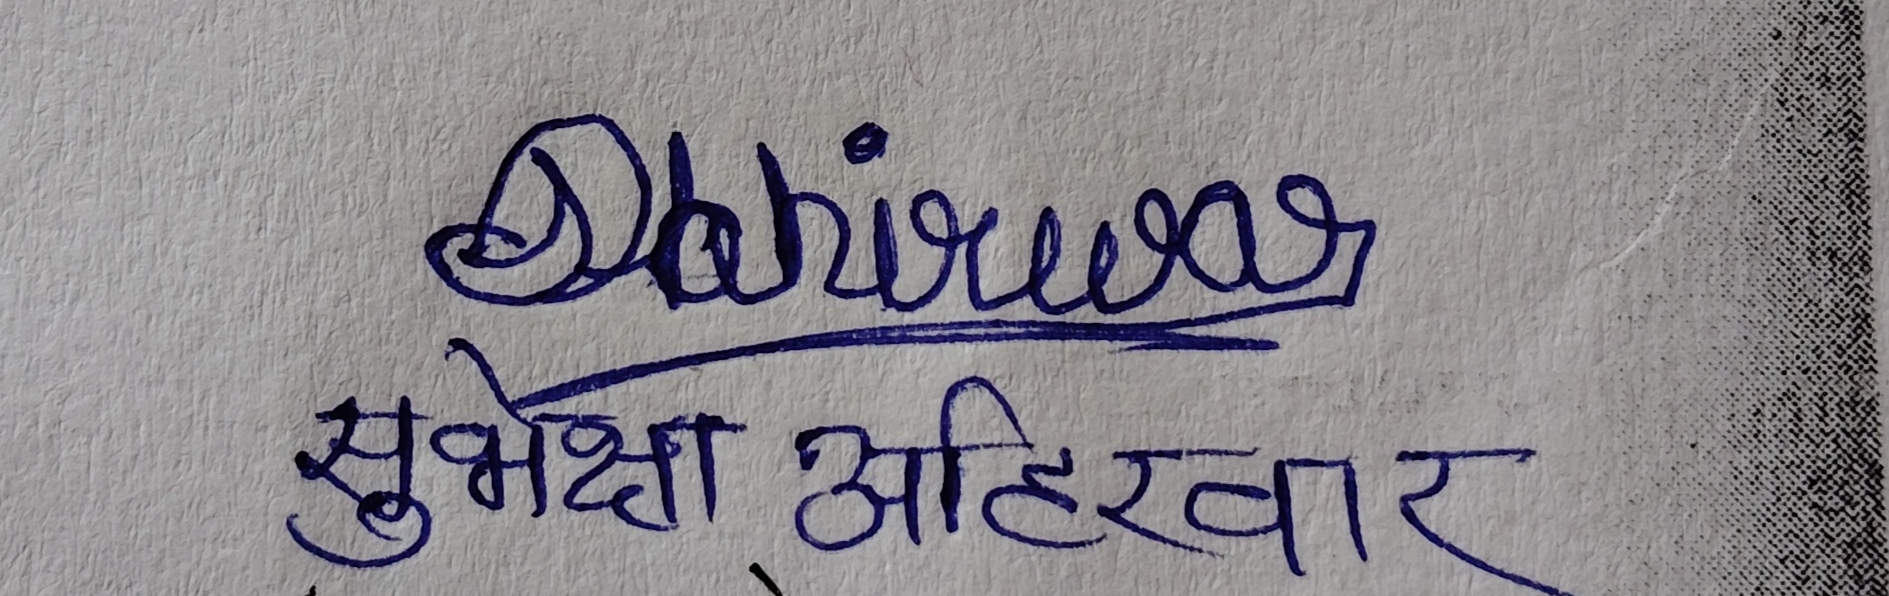 Ahirwar
सुभेक्षा अहिरवार